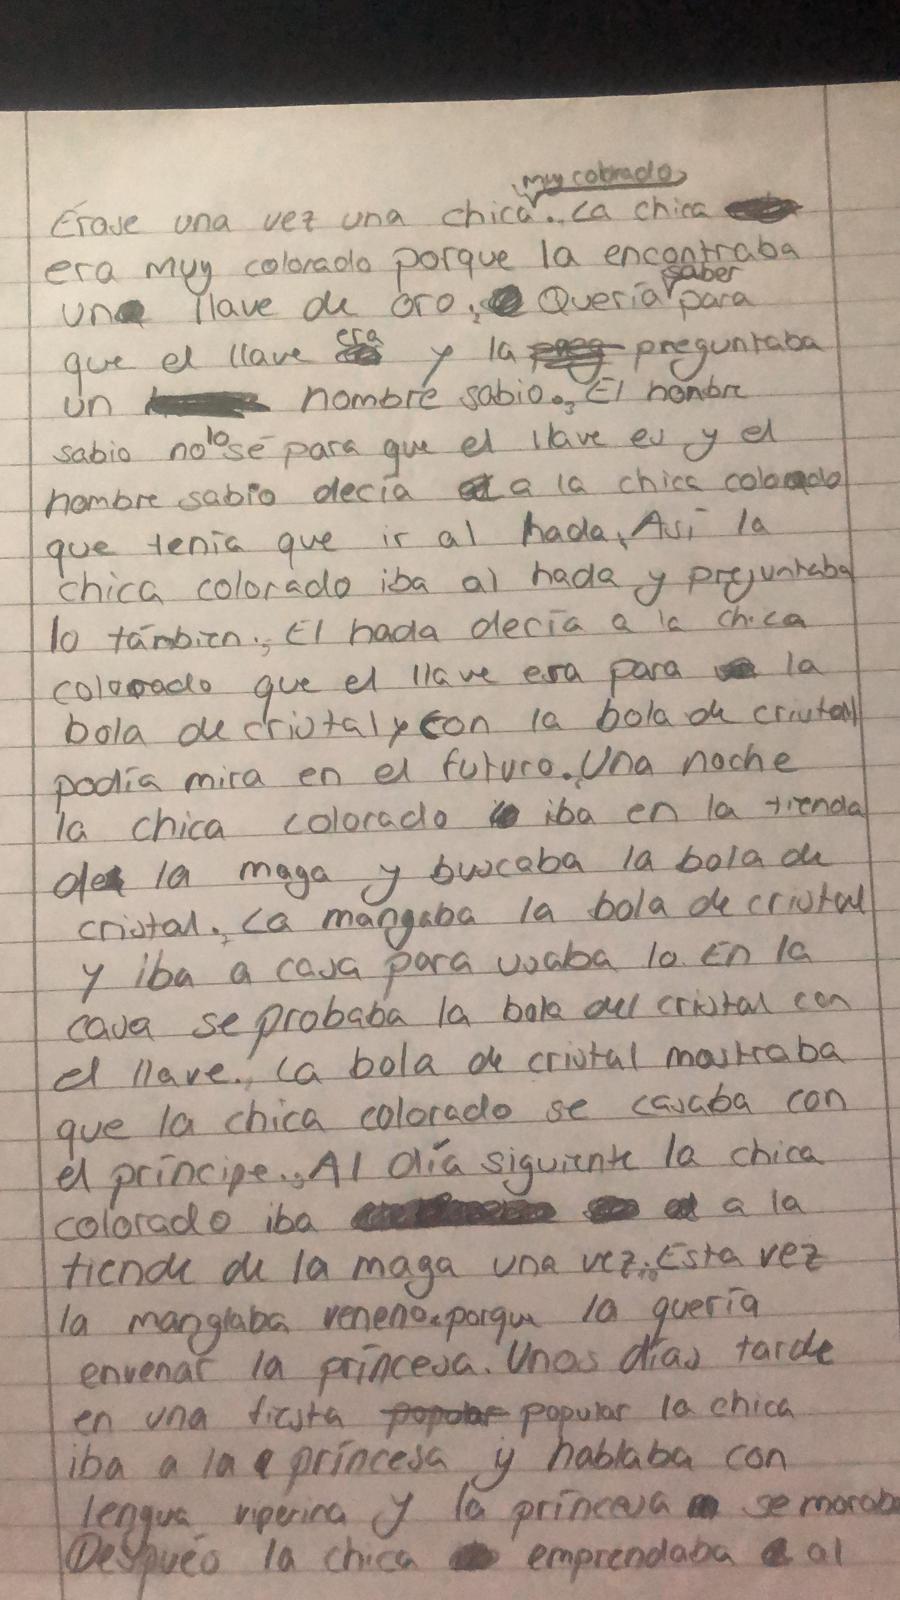 muy colorado
Érase una vez una chica. La chica
era muy colorado porque la encontraba
una llave de oro. Quería saber para
que el llave era y la preguntaba
un hombre sabio. El hombre
sabio no lo sé para que el llave es y el
hombre sabio decía a la chica colorado
que tenía que ir al hada. Así la
chica colorado iba al hada y preguntaba
lo támbien. El hada decía a la chica
colorado que el llave era para la
bola de cristal y con la bola de cristal
podía mira en el futuro. Una noche
la chica colorado iba en la tienda
de la maga y buscaba la bola de
cristal. La mangaba la bola de cristal
y iba a casa para usaba lo. En la
casa se probaba la bola del cristal con
el llave. La bola de cristal mostraba
que la chica colorado se casaba con
el príncipe. Al día siguiente la chica
colorado iba a la
tiende de la maga una vez. Esta vez
la manglaba veneno porque la quería
envenar la princesa. Unos días tarde
en una fiesta popular la chica
iba a la princesa y hablaba con
lengua viperina y la princesa se moraba
Después la chica emprendaba al